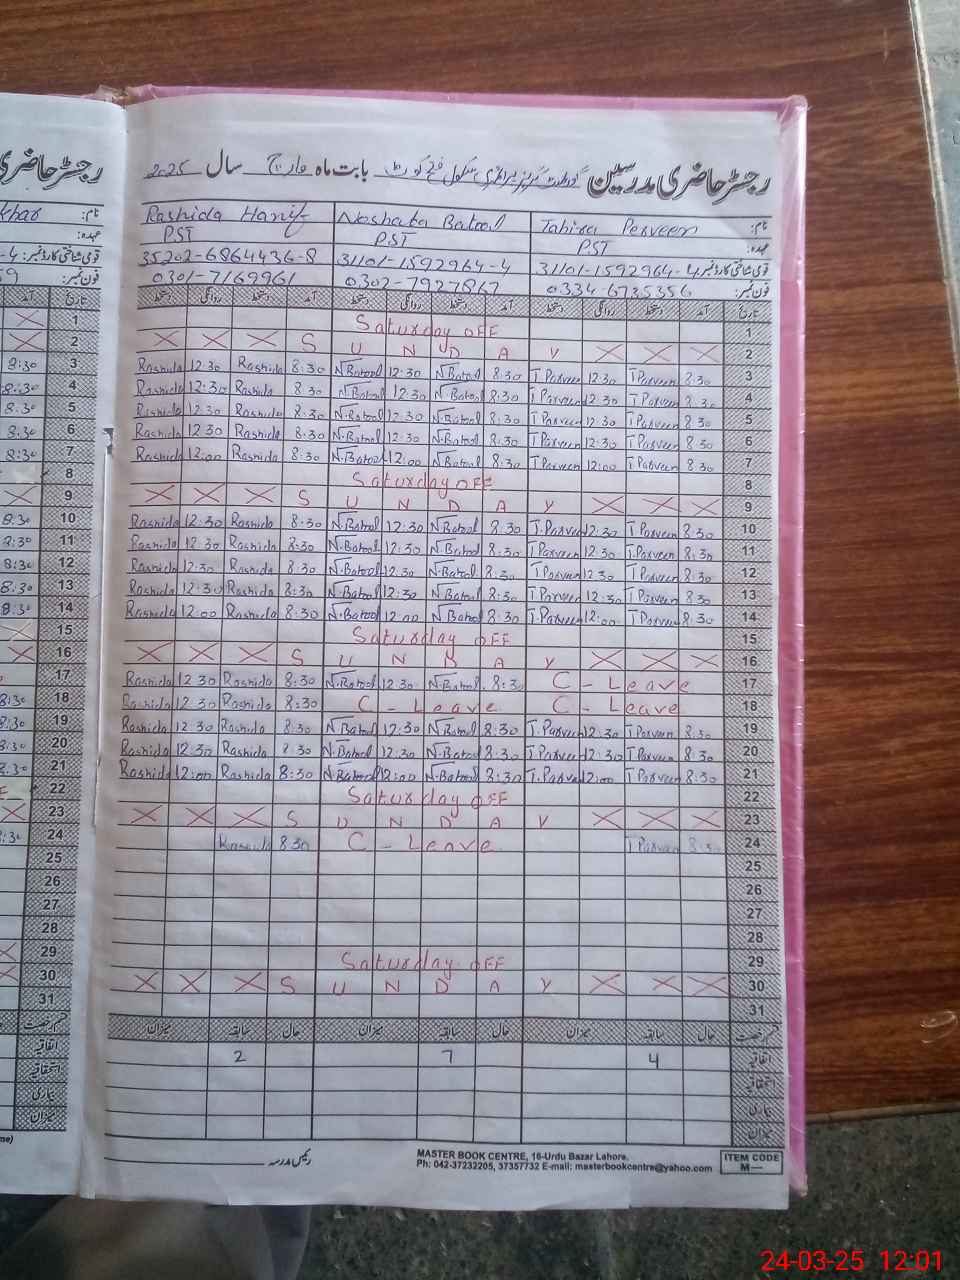 رجسٹر حاضری مدرسین گورنمنٹ گرلز پرائمری سکول فتح کوٹ بابت ماہ مارچ سال 2025
رجسٹر حاضری
نام: Tahira Perveen Noshaba Batool Rashida Hanif
عہدہ: PST PST PST
قومی شناختی کارڈ نمبر: 31101-1592964-4 31101-1592964-4 35202-6864436-8
فون نمبر: 0334-6735356 0302-7927867 0301-7169961
تاریخ آمد دستخط روانگی دستخط آمد دستخط روانگی دستخط آمد دستخط روانگی دستخط
1 Saturday OFF 1
2 X X X S U N D A Y X X X 2
3 Rashida 12:30 Rashida 8:30 N.Batool 12:30 N.Batool 8:30 T Parveen 12:30 T Parveen 8:30 3
4 Rashida 12:30 Rashida 8:30 N.Batool 12:30 N.Batool 8:30 T Parveen 12:30 T Parveen 8:30 4
5 Rashida 12:30 Rashida 8:30 N.Batool 12:30 N.Batool 8:30 T Parveen 12:30 T Parveen 8:30 5
6 Rashida 12:30 Rashida 8:30 N.Batool 12:30 N.Batool 8:30 T Parveen 12:30 T Parveen 8:30 6
7 Rashida 12:00 Rashida 8:30 N.Batool 12:00 N.Batool 8:30 T Parveen 12:00 T Parveen 8:30 7
8 Saturday OFF 8
9 X X X S U N D A Y X X X 9
10 Rashida 12:30 Rashida 8:30 N.Batool 12:30 N.Batool 8:30 T.Parveen 12:30 T Parveen 8:30 10
11 Rashida 12:30 Rashida 8:30 N.Batool 12:30 N.Batool 8:30 T Parveen 12:30 T.Parveen 8:30 11
12 Rashida 12:30 Rashida 8:30 N.Batool 12:30 N.Batool 8:30 T Parveen 12:30 T Parveen 8:30 12
13 Rashida 12:30 Rashida 8:30 N.Batool 12:30 N.Batool 8:30 T Parveen 12:30 T Parveen 8:30 13
14 Rashida 12:00 Rashida 8:30 N.Batool 12:00 N.Batool 8:30 T.Parveen 12:00 T Parveen 8:30 14
15 Saturday OFF 15
16 X X X S U N D A Y X X X 16
17 Rashida 12:30 Rashida 8:30 N.Batool 12:30 N.Batool 8:30 C - Leave 17
18 Rashida 12:30 Rashida 8:30 C - Leave C - Leave 18
19 Rashida 12:30 Rashida 8:30 N.Batool 12:30 N.Batool 8:30 T.Parveen 12:30 T Parveen 8:30 19
20 Rashida 12:30 Rashida 8:30 N.Batool 12:30 N.Batool 8:30 T Parveen 12:30 T Parveen 8:30 20
21 Rashida 12:00 Rashida 8:30 N.Batool 12:00 N.Batool 8:30 T.Parveen 12:00 T Parveen 8:30 21
22 Saturday OFF 22
23 X X X S U N D A Y X X X 23
24 Rashida 8:30 C - Leave T Parveen 8:30 24
25 25
26 26
27 27
28 28
29 Saturday OFF 29
30 X X X S U N D A Y X X X 30
31 31
قسم رخصت حال سابقہ میزان حال سابقہ میزان حال سابقہ میزان
اتفاقیہ 4 7 2
استحقاقیہ
بیماری
میزان
رئیس مدرسہ
MASTER BOOK CENTRE, 16-Urdu Bazar Lahore.
Ph: 042-37232205, 37357732 E-mail: masterbookcentre@yahoo.com
ITEM CODE
M—
24-03-25 12:01